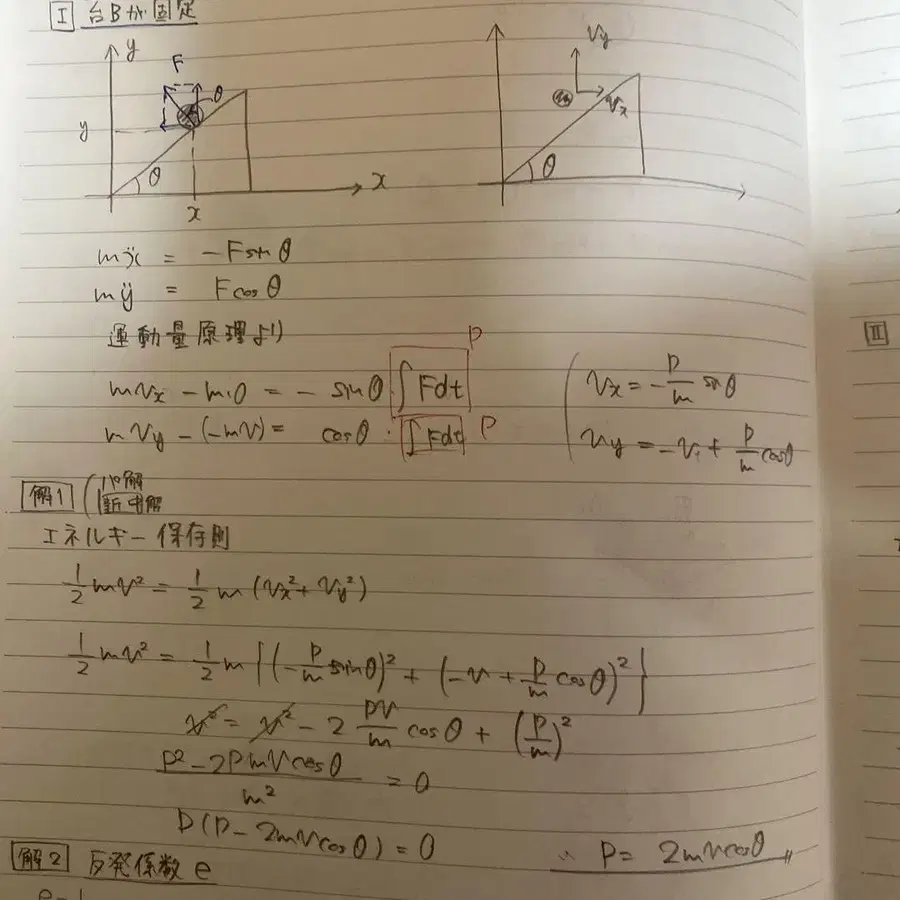 I 台Bが固定
y
F
θ
y
θ
x
x
vy
m
vx
θ
mẍ = -Fsinθ
mÿ = Fcosθ
運動量原理より
P
mvx - m・0 = - sinθ ∫Fdt
vx = - P/m sinθ
mvy - (-mv) = cosθ・∫Fdt P
vy = -v + P/m cosθ
II
解1
エネルギー保存則
1/2 mv² = 1/2 m (vx² + vy²)
1/2 mv² = 1/2 m {(-P/m sinθ)² + (-v + P/m cosθ)²}
v² = v² - 2 Pv/m cosθ + (P/m)²
(P² - 2Pmvcosθ)/m² = 0
P(P - 2mvcosθ) = 0
∴ P = 2mvcosθ
解2 反発係数e
e=1